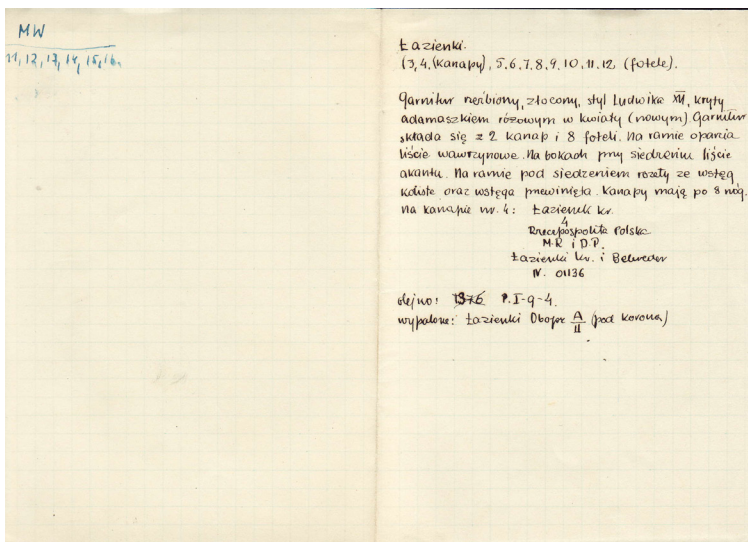 MW
11, 12, 13, 14, 15, 16.
Łazienki.
(3,4.(kanapy), 5.6.7.8.9.10.11.12 (fotele).
Garnitur rzeźbiony, złocony, styl Ludwika XVI, kryty
adamaszkiem różowym w kwiaty (nowym) Garnitur
składa się z 2 kanap i 8 foteli. Na ramie oparcia
liście wawrzynowe. Na bokach przy siedzeniu liście
akantu. Na ramie pod siedzeniem rozety ze wstęgą
koliste oraz wstęga przewinięta. Kanapy mają po 8 nóg.
Na kanapie nr. 4: Łazienek kr.
4
Rzeczpospolita Polska
M.R i D.P.
Łazienki kr. i Belweder
N. 01136
olejno: 1376 P.I-9-4.
wypalone: Łazienki A/II (pod koroną)